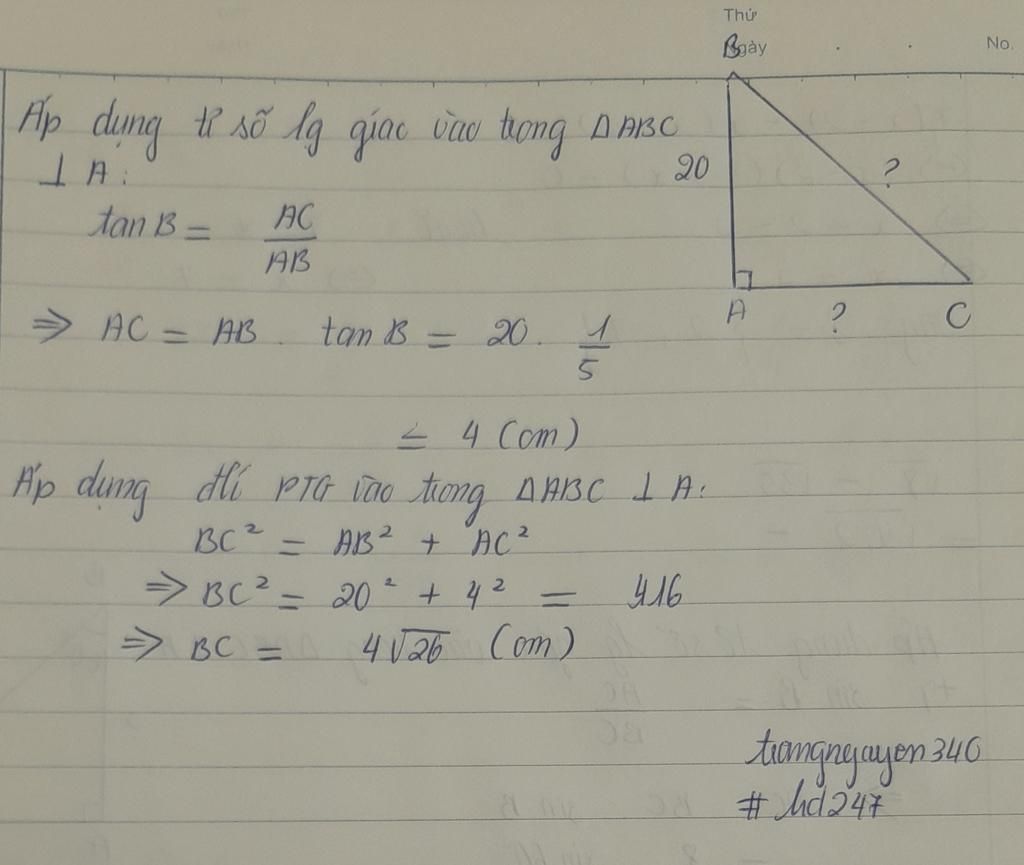 Thứ
Ngày
No.
B
Áp dụng tỉ số lg giác vào trong ΔABC
⊥ A:
20
?
tan B = AC/AB
A
?
C
=> AC = AB . tan B = 20 . 1/5
= 4 (cm)
Áp dụng đlí PTG vào trong ΔABC ⊥ A:
BC² = AB² + AC²
=> BC² = 20² + 4² = 416
=> BC = 4√26 (cm)
# hd247